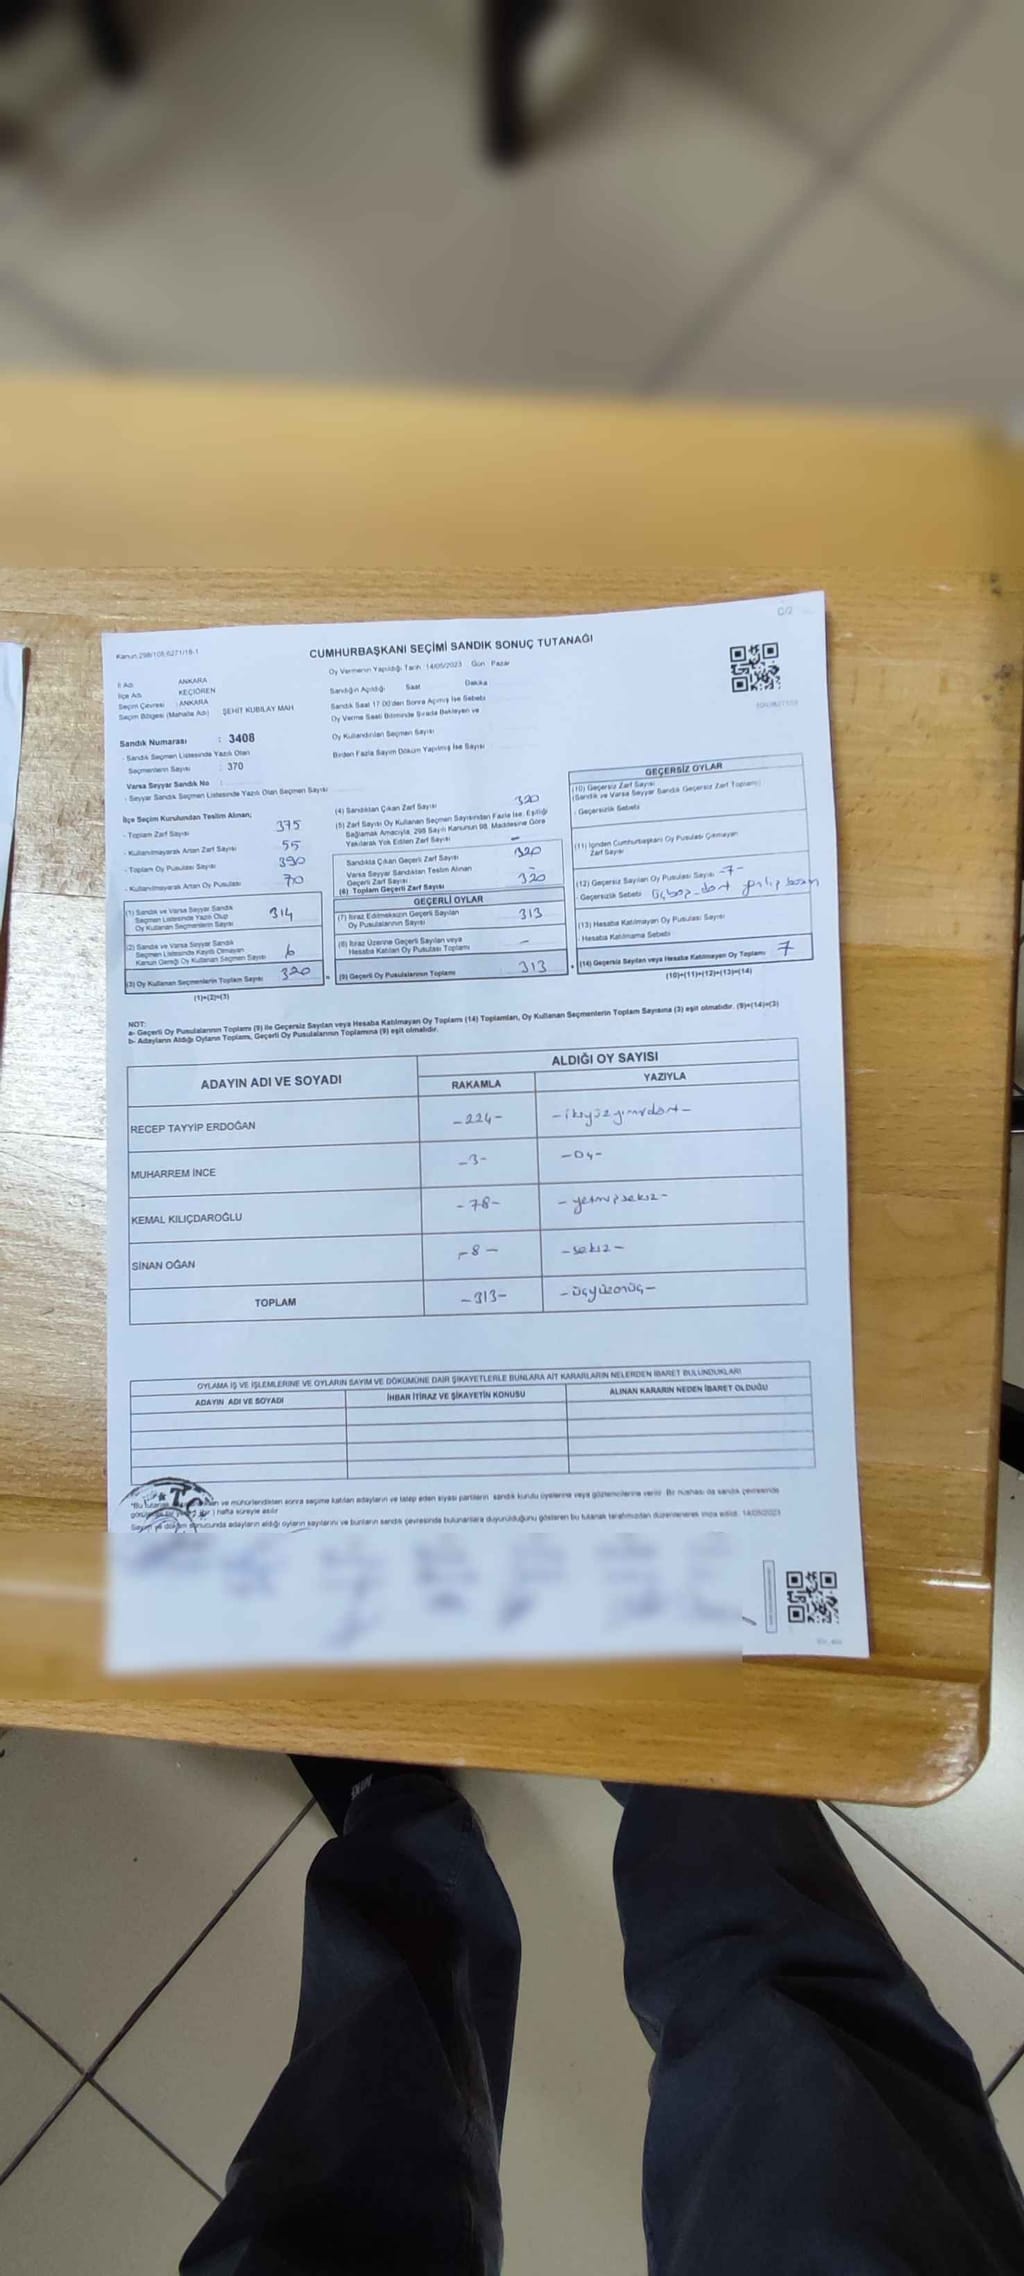 C/2
Kanun:298/105;6271/18-1
CUMHURBAŞKANI SEÇİMİ SANDIK SONUÇ TUTANAĞI
Oy Vermenin Yapıldığı Tarih: 14/05/2023 Gün: Pazar
İl Adı ANKARA
İlçe Adı KEÇİÖREN
Seçim Çevresi : ANKARA
Seçim Bölgesi (Mahalle Adı) ŞEHİT KUBİLAY MAH
Sandığın Açıldığı Saat Dakika
Sandık Saat 17:00'den Sonra Açılmış İse Sebebi
Oy Verme Saati Bitiminde Sırada Bekleyen ve
Oy Kullandırılan Seçmen Sayısı
Birden Fazla Sayım Döküm Yapılmış İse Sayısı
Sandık Numarası : 3408
- Sandık Seçmen Listesinde Yazılı Olan
Seçmenlerin Sayısı : 370
Varsa Seyyar Sandık No :
- Seyyar Sandık Seçmen Listesinde Yazılı Olan Seçmen Sayısı
İlçe Seçim Kurulundan Teslim Alınan;
- Toplam Zarf Sayısı 375
- Kullanılmayarak Artan Zarf Sayısı 55
- Toplam Oy Pusulası Sayısı 390
- Kullanılmayarak Artan Oy Pusulası 70
(1) Sandık ve Varsa Seyyar Sandık
Seçmen Listesinde Yazılı Olup
Oy Kullanan Seçmenlerin Sayısı 314
(2) Sandık ve Varsa Seyyar Sandık
Seçmen Listesinde Kayıtlı Olmayan
Kanun Gereği Oy Kullanan Seçmen Sayısı 6
(3) Oy Kullanan Seçmenlerin Toplam Sayısı 320
(1)+(2)=(3)
(4) Sandıktan Çıkan Zarf Sayısı 320
(5) Zarf Sayısı Oy Kullanan Seçmen Sayısından Fazla İse, Eşitliği
Sağlamak Amacıyla, 298 Sayılı Kanunun 98. Maddesine Göre
Yakılarak Yok Edilen Zarf Sayısı -
Sandıkta Çıkan Geçerli Zarf Sayısı 320
Varsa Seyyar Sandıktan Teslim Alınan
Geçerli Zarf Sayısı -
(6) Toplam Geçerli Zarf Sayısı 320
GEÇERLİ OYLAR
(7) İtiraz Edilmeksizin Geçerli Sayılan
Oy Pusulalarının Sayısı 313
(8) İtiraz Üzerine Geçerli Sayılan veya
Hesaba Katılan Oy Pusulası Toplamı -
(9) Geçerli Oy Pusulalarının Toplamı 313
GEÇERSİZ OYLAR
(10) Geçersiz Zarf Sayısı
(Sandık ve Varsa Seyyar Sandık Geçersiz Zarf Toplamı)
- Geçersizlik Sebebi
(11) İçinden Cumhurbaşkanı Oy Pusulası Çıkmayan
Zarf Sayısı
(12) Geçersiz Sayılan Oy Pusulası Sayısı -7-
- Geçersizlik Sebebi
(13) Hesaba Katılmayan Oy Pusulası Sayısı
Hesaba Katılmama Sebebi
(14) Geçersiz Sayılan veya Hesaba Katılmayan Oy Toplamı 7
(10)+(11)+(12)+(13)=(14)
NOT:
a- Geçerli Oy Pusulalarının Toplamı (9) ile Geçersiz Sayılan veya Hesaba Katılmayan Oy Toplamı (14) Toplamları, Oy Kullanan Seçmenlerin Toplam Sayısına (3) eşit olmalıdır. (9)+(14)=(3)
b- Adayların Aldığı Oyların Toplamı, Geçerli Oy Pusulalarının Toplamına (9) eşit olmalıdır.
ADAYIN ADI VE SOYADI ALDIĞI OY SAYISI
RAKAMLA YAZIYLA
RECEP TAYYİP ERDOĞAN -224- -ikiyüzyirmidört-
MUHARREM İNCE -3- -üç-
KEMAL KILIÇDAROĞLU -78- -yetmişsekiz-
SİNAN OĞAN -8- -sekiz-
TOPLAM -313- -üçyüzonüç-
OYLAMA İŞ VE İŞLEMLERİNE VE OYLARIN SAYIM VE DÖKÜMÜNE DAİR ŞİKAYETLERLE BUNLARA AİT KARARLARIN NELERDEN İBARET BULUNDUKLARI
ADAYIN ADI VE SOYADI İHBAR İTİRAZ VE ŞİKAYETİN KONUSU ALINAN KARARIN NEDEN İBARET OLDUĞU
T.C.
*Bu tutanak ve mühürlendikten sonra seçime katılan adayların ve talep eden siyasi partilerin sandık kurulu üyelerine veya gözlemcilerine verilir. Bir nüshası da sandık çevresinde
hafta süreyle asılır
Sayım ve döküm sonucunda adayların aldığı oyların sayılarını ve bunların sandık çevresinde bulunanlara duyurulduğunu gösteren bu tutanak tarafımızdan düzenlenerek imza edildi. 14/05/2023